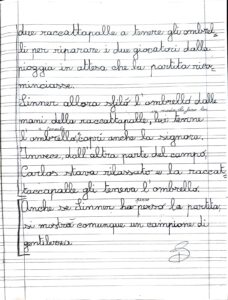 due raccattapalle a tenere gli ombrel-
li per riparare i due giocatori dalla
pioggia in attesa che la partita rico-
minciasse.
Sinner allora sfilò l'ombrello dalle
mani della raccattapalle, lui tenne
l'ombrello e coprì anche la signora.
Invece, dall'altra parte del campo,
Carlos stava rilassato e la raccat-
taccapalle gli teneva l'ombrello.
Anche se Sinner ha perso la partita,
si mostrò comunque un campione di
gentilezza.